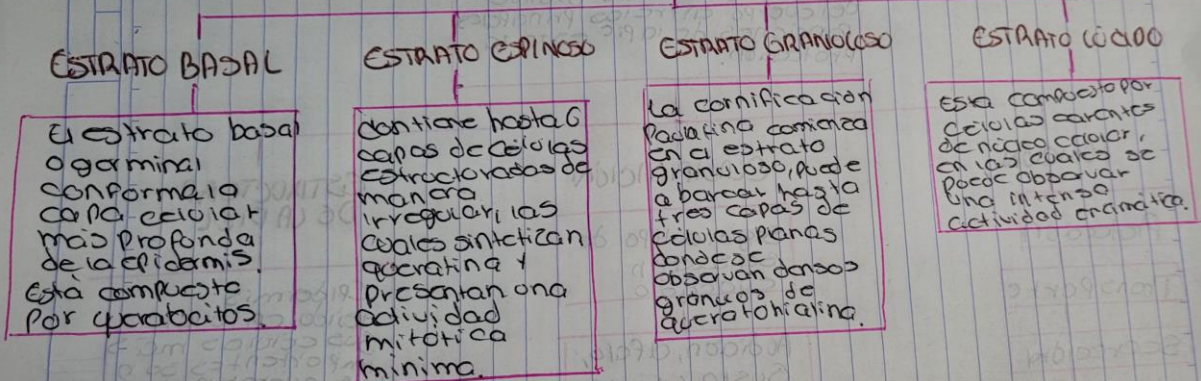 ESTRATO BASAL
El estrato basal
o germinal
conforma la
capa celular
más profunda
de la epidermis.
Está compuesto
por querabocitos.
ESTRATO ESPINOSO
Contiene hasta 6
capas de células
estructuradas de
manera
irregular, las
cuales sintetizan
queratina y
presentan una
actividad
mitótica
mínima.
ESTRATO GRANULOSO
La cornificación
Paulatina comienza
en el estrato
granuloso, puede
abarcar hasta
tres capas de
células planas
donde se
observan densos
gránulos de
queratohialina.
ESTRATO LÚCIDO
Esta compuesto por
células carentes
de núcleo celular,
en las cuales se
puede observar
una intensa
actividad enzimática.